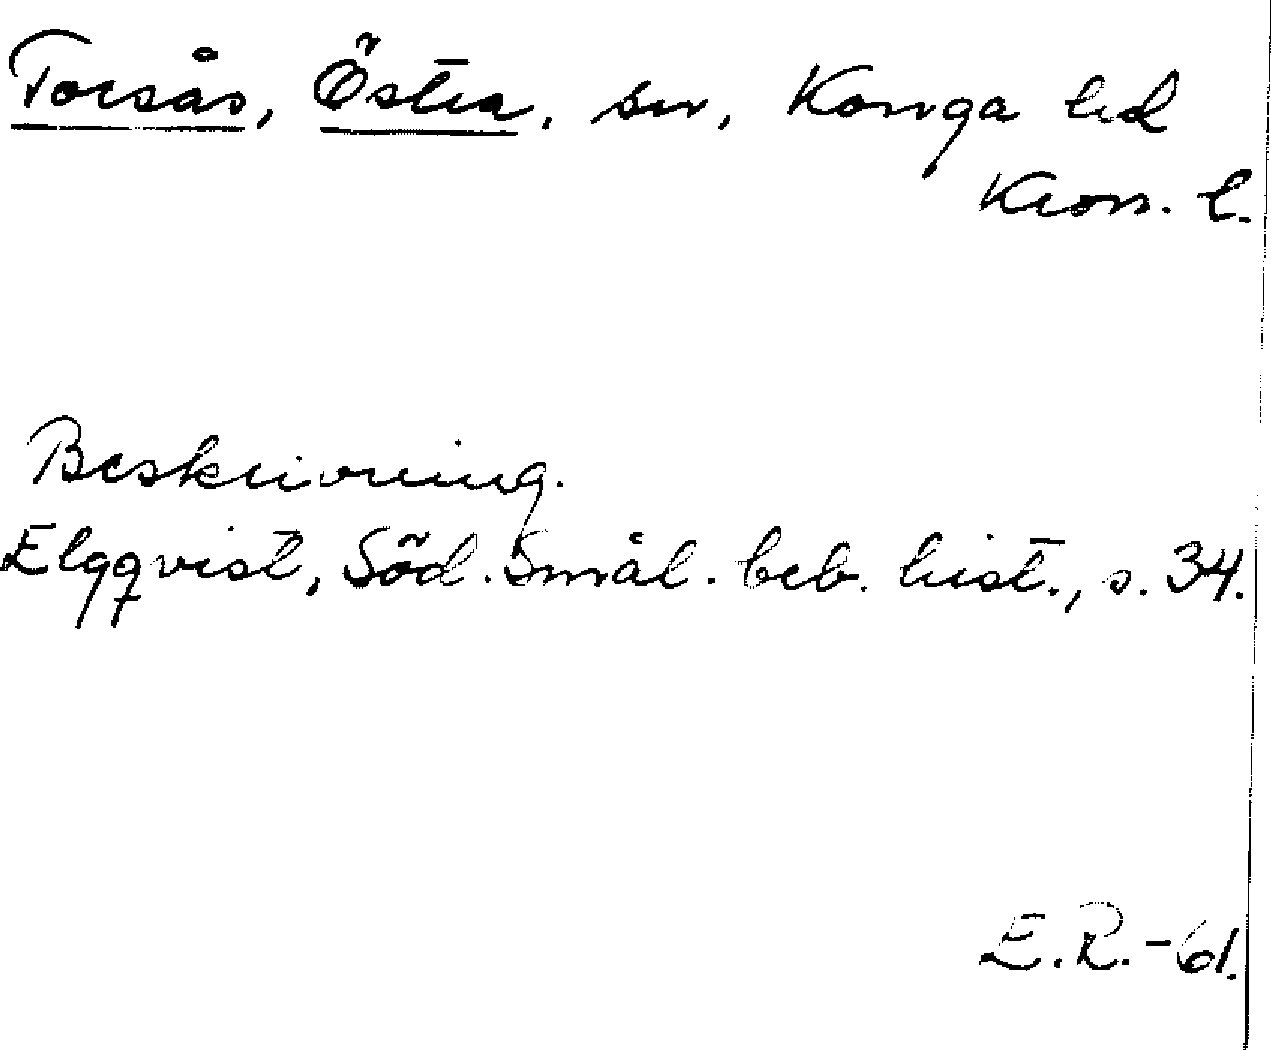 Torsås, Östra, sn, Konga hd
Kron. l.
Beskrivning.
Elgqvist, Söd. Smål. beb. hist., s. 34.
E.R.-61.